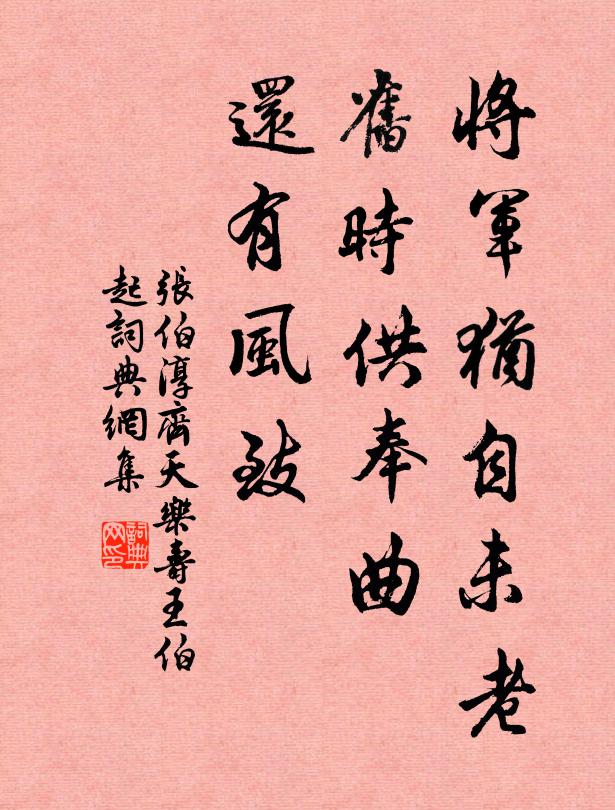 將軍猶自未老
舊時供奉曲
還有風致
張伯淳齊天樂壽王伯
起詞典網集
詞典网印